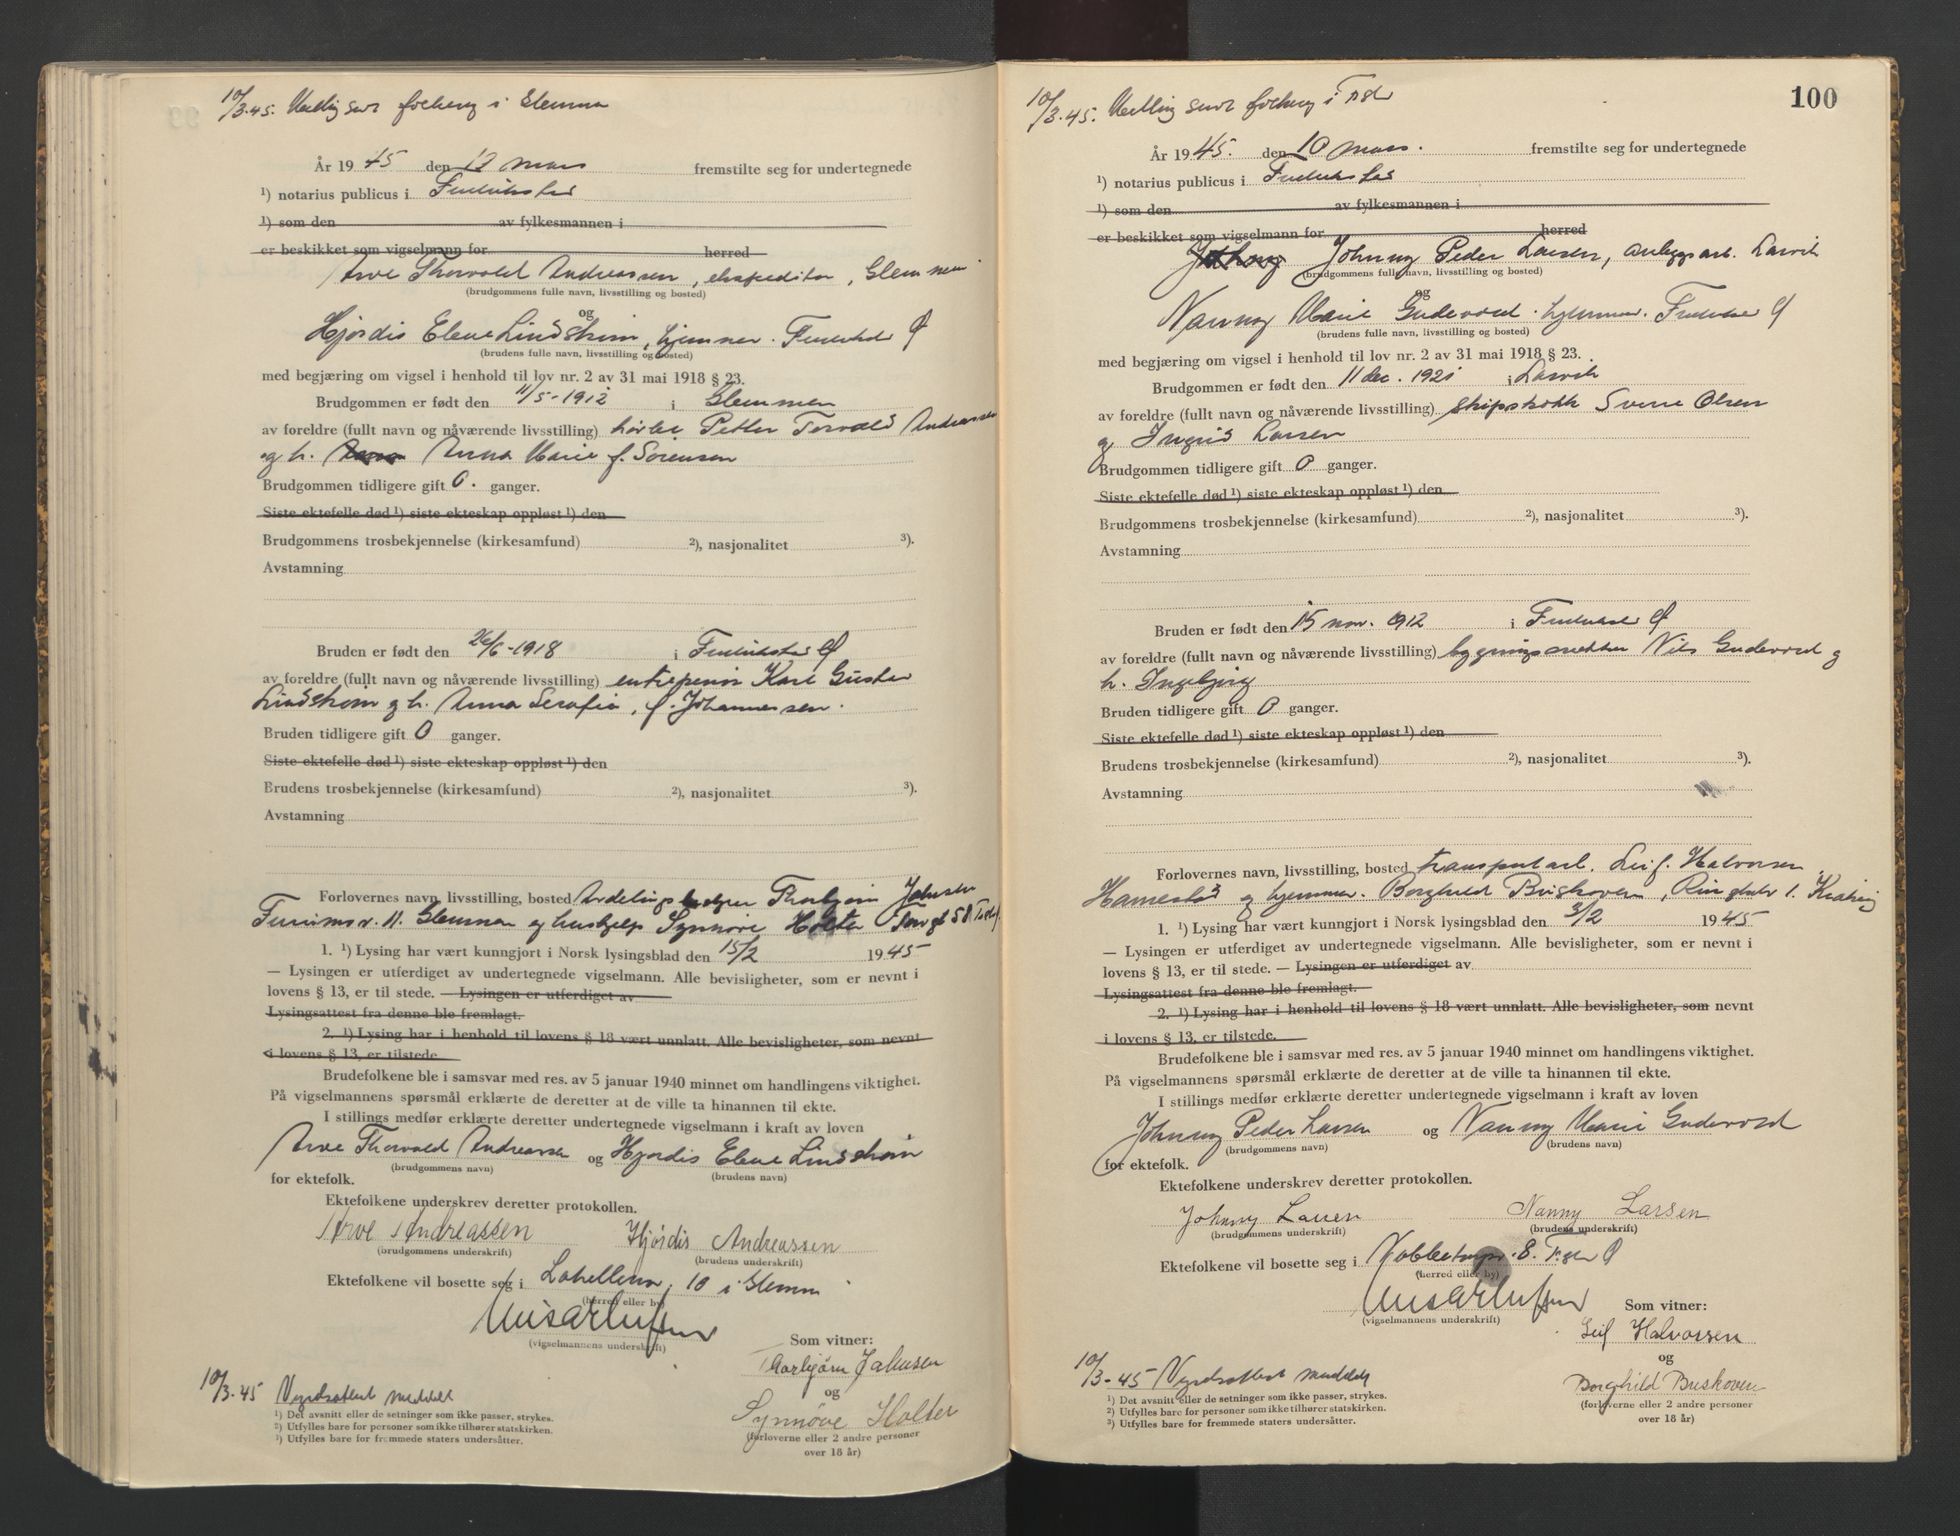 10/3.45. Melding sendt folkereg i Glemmen
År 1945 den 13 mars fremstilte seg for undertegnede
¹) notarius publicus i Fredrikstad
¹) som den av fylkesmannen i
er beskikket som vigselmann for herred
Arve Thorvald Andreassen, ekspeditør, Glemmen
(brudgommens fulle navn, livsstilling og bosted)
og
Hjørdis Elene Lindstrøm, hjemmev. Fredrikstad Ø
(brudens fulle navn, livsstilling og bosted)
med begjæring om vigsel i henhold til lov nr. 2 av 31 mai 1918 § 23.
Brudgommen er født den 11/5-1912 i Glemmen
av foreldre (fullt navn og nåværende livsstilling) Petter Torvald Andreassen
og h. Anna Marie f. Sørensen
Brudgommen tidligere gift 0. ganger.
Siste ektefelle død ¹) siste ekteskap oppløst ¹) den
Brudgommens trosbekjennelse (kirkesamfund) ²), nasjonalitet ³).
Avstamning
Bruden er født den 26/6-1918 i Fredrikstad Ø
av foreldre (fullt navn og nåværende livsstilling) entreprenør Karl Gustav
Lindstrøm og h. Anna Serafia, f. Johannessen.
Bruden tidligere gift 0 ganger.
Siste ektefelle død ¹) siste ekteskap oppløst ¹) den
Brudens trosbekjennelse (kirkesamfund) ²), nasjonalitet ³).
Avstamning
Forlovernes navn, livsstilling, bosted Thorbjørn Johnsen
11. Glemmen og hushjelp Synnøve Holter
1. ¹) Lysing har vært kunngjort i Norsk lysingsblad den 15/2 1945
— Lysingen er utferdiget av undertegnede vigselmann. Alle bevisligheter, som er nevnt i
lovens § 13, er til stede. — Lysingen er utferdiget av
Lysingsattest fra denne ble fremlagt.
2. ¹) Lysing har i henhold til lovens § 18 vært unnlatt. Alle bevisligheter, som nevnt
i lovens § 13, er tilstede
Brudefolkene ble i samsvar med res. av 5 januar 1940 minnet om handlingens viktighet.
På vigselmannens spørsmål erklærte de deretter at de ville ta hinannen til ekte.
I stillings medfør erklærte deretter undertegnede vigselmann i kraft av loven
Arve Thorvald Andreassen og Hjørdis Elene Lindstrøm
(brudgommens navn) (brudens navn)
for ektefolk.
Ektefolkene underskrev deretter protokollen.
Arve Andreassen Hjørdis Andreassen
(brudgommens underskrift) (brudens underskrift)
Ektefolkene vil bosette seg i 10 i Glemmen
(herred eller by)
(vigselmannens underskrift)
Som vitner:
Thorbjørn Johnsen
og
Synnøve Holter
(forloverne eller 2 andre personer
over 18 år)
10/3-45 Vigselsattest meddelt
¹) Det avsnitt eller de setninger som ikke passer, strykes.
²) Utfylles bare for personer som ikke tilhører statskirken.
³) Utfylles bare for fremmede staters undersåtter.
100
10/3.45. Melding sendt folkereg i F.stad
År 1945. den 10 mars. fremstilte seg for undertegnede
¹) notarius publicus i Fredrikstad
¹) som den av fylkesmannen i
er beskikket som vigselmann for herred
Johnny Peder Larsen, anleggsarb. Larvik
(brudgommens fulle navn, livsstilling og bosted)
og
Nanny Marie Gudevold. hjemmev. Fredrikstad Ø
(brudens fulle navn, livsstilling og bosted)
med begjæring om vigsel i henhold til lov nr. 2 av 31 mai 1918 § 23.
Brudgommen er født den 11 dec. 1921 i Larvik
av foreldre (fullt navn og nåværende livsstilling) skipskokk Sverre Olsen
og Ingrid Larsen
Brudgommen tidligere gift 0 ganger.
Siste ektefelle død ¹) siste ekteskap oppløst ¹) den
Brudgommens trosbekjennelse (kirkesamfund) ²), nasjonalitet ³).
Avstamning
Bruden er født den 15 nov. 1912 i Fredrikstad Ø
av foreldre (fullt navn og nåværende livsstilling) bygningssnekker Nils Gudevold og
h. Ingebjørg
Bruden tidligere gift 0 ganger.
Siste ektefelle død ¹) siste ekteskap oppløst ¹) den
Brudens trosbekjennelse (kirkesamfund) ²), nasjonalitet ³).
Avstamning
Forlovernes navn, livsstilling, bosted transportarb. Leif Halvorsen
og hjemmev. Borghild Buskoven,
1. ¹) Lysing har vært kunngjort i Norsk lysingsblad den 3/2 1945
— Lysingen er utferdiget av undertegnede vigselmann. Alle bevisligheter, som er nevnt i
lovens § 13, er til stede. — Lysingen er utferdiget av
Lysingsattest fra denne ble fremlagt.
2. ¹) Lysing har i henhold til lovens § 18 vært unnlatt. Alle bevisligheter, som nevnt
i lovens § 13, er tilstede.
Brudefolkene ble i samsvar med res. av 5 januar 1940 minnet om handlingens viktighet.
På vigselmannens spørsmål erklærte de deretter at de ville ta hinannen til ekte.
I stillings medfør erklærte deretter undertegnede vigselmann i kraft av loven
Johnny Peder Larsen og Nanny Marie Gudevold
(brudgommens navn) (brudens navn)
for ektefolk.
Ektefolkene underskrev deretter protokollen.
Johnny Larsen Nanny Larsen
(brudgommens underskrift) (brudens underskrift)
Ektefolkene vil bosette seg i 8. F.stad Ø
(herred eller by)
(vigselmannens underskrift)
Som vitner:
Leif Halvorsen
og
Borghild Buskoven
(forloverne eller 2 andre personer
over 18 år)
10/3-45 Vigselsattest meddelt
¹) Det avsnitt eller de setninger som ikke passer, strykes.
²) Utfylles bare for personer som ikke tilhører statskirken.
³) Utfylles bare for fremmede staters undersåtter.